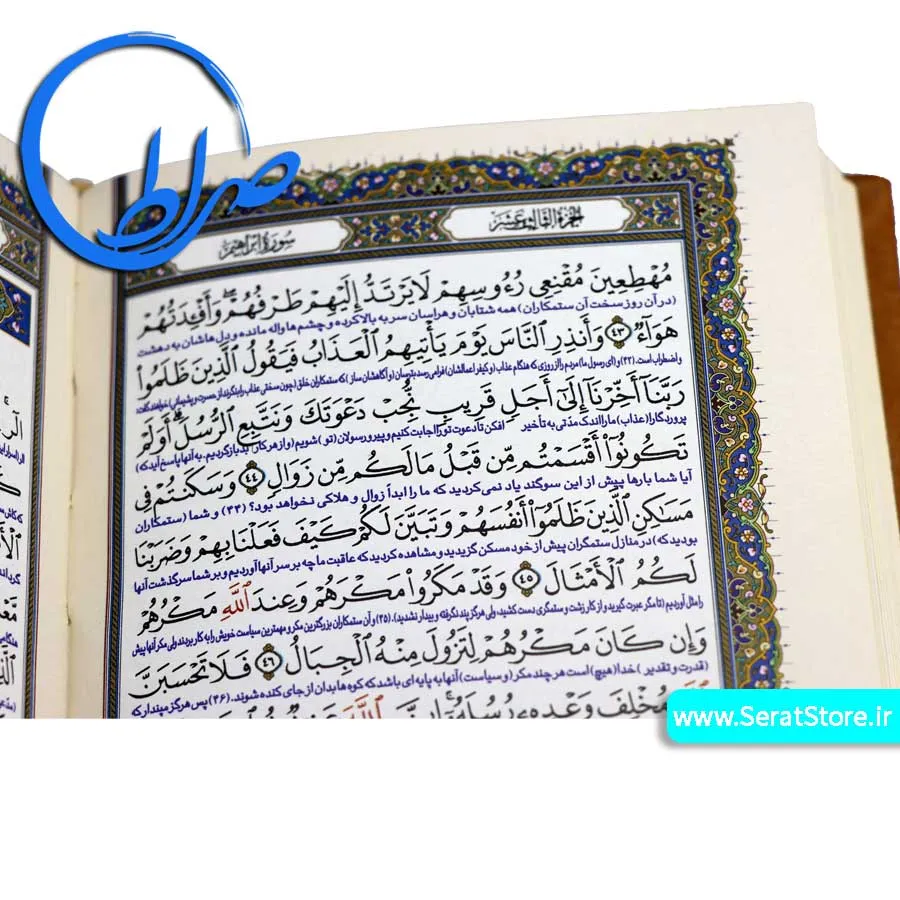 صراط
الجزء الثالث عشر
سورة ابراهیم
مُهْطِعِينَ مُقْنِعِي رُءُوسِهِمْ لَا يَرْتَدُّ إِلَيْهِمْ طَرْفُهُمْ ۖ وَأَفْئِدَتُهُمْ
(در آن روز سخت آن ستمکاران) همه شتابان و هراسان سر به بالا کرده و چشم‌ها واله مانده و دل هاشان به دهشت
هَوَاءٌ ﴿٤٣﴾ وَأَنْذِرِ النَّاسَ يَوْمَ يَأْتِيهِمُ الْعَذَابُ فَيَقُولُ الَّذِينَ ظَلَمُوا
و اضطراب است. (۴۳) و (ای رسول ما) مردم را از روزی که هنگام عذاب (و کیفر اعمالشان) فرامی‌رسد بترسان (و آگاهشان ساز) که ستمکاران خلق (چون سختی عذاب را بنگرند از حسرت و پشیمانی) خواهند گفت:
رَبَّنَا أَخِّرْنَا إِلَىٰ أَجَلٍ قَرِيبٍ نُجِبْ دَعْوَتَكَ وَنَتَّبِعِ الرُّسُلَ ۗ أَوَلَمْ
پروردگارا (عذاب) ما را اندک مدّتی به تأخیر افکن تا دعوت تو را اجابت کنیم و پیرو رسولان (تو) شویم (و از هر کار بد بازگردیم. به آنها پاسخ آید که)
تَكُونُوا أَقْسَمْتُمْ مِنْ قَبْلُ مَا لَكُمْ مِنْ زَوَالٍ ﴿٤٤﴾ وَسَكَنْتُمْ فِي
آیا شما بارها پیش از این سوگند یاد نمی‌کردید که ما را ابداً زوال و هلاکی نخواهد بود؟ (۴۴) و شما (ستمکاران
مَسَاكِنِ الَّذِينَ ظَلَمُوا أَنْفُسَهُمْ وَتَبَيَّنَ لَكُمْ كَيْفَ فَعَلْنَا بِهِمْ وَضَرَبْنَا
بودید که) در منازل ستمگران پیش از خود مسکن گزیدید و مشاهده کردید که عاقبت ما چه بر سر آنها آوردیم و بر شما سرگذشت آنها
لَكُمُ الْأَمْثَالَ ﴿٤٥﴾ وَقَدْ مَكَرُوا مَكْرَهُمْ وَعِنْدَ اللَّهِ مَكْرُهُمْ
را مثل آوردیم (تا مگر عبرت گیرید و از کار زشت و ستمگری دست کشید، ولی هرگز پند نگرفته و بیدار نشدید). (۴۵) و آن ستمکاران بزرگترین مکر و مهمترین سیاست خویش را به کار بردند ولی مکر آنها پیش
وَإِنْ كَانَ مَكْرُهُمْ لِتَزُولَ مِنْهُ الْجِبَالُ ﴿٤٦﴾ فَلَا تَحْسَبَنَّ
(قدرت و تقدیر) خدا (هیچ) است هر چند مکر (و سیاست) آنها به پایه ای باشد که کوه‌ها بدان از جای کنده شوند. (۴۶) پس هرگز مپندار که
مُخْلِفَ وَعْدِهِ رُسُلَهُ ۗ إِنَّ اللَّهَ
www.SeratStore.ir